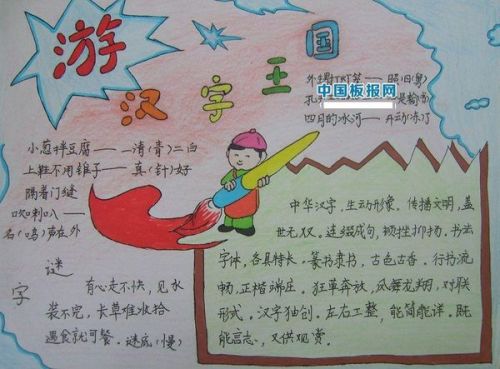 游
汉字王国
中国板报网
外甥打灯笼——照旧(舅)
孔 是输(书)
四月的冰河——开动(冻)了
小葱拌豆腐——一清(青)二白
上鞋不用锥子——真(针)好
隔着门缝
吹喇叭——
名(鸣)声在外
谜
字
有心走不快,见水
装不完,长草难收拾
遇食就可餐.谜底(慢)
中华汉字,生动形象.传播文明,盖
世无双.连缀成句,挫抑扬.书法
字体,各具特长.篆书隶书,古色古香.行书流
畅,正楷端庄.狂草奔放,舞龙翔.对联
形式.汉字独创.左右工整,能简能详.既
能言志,又供观赏.